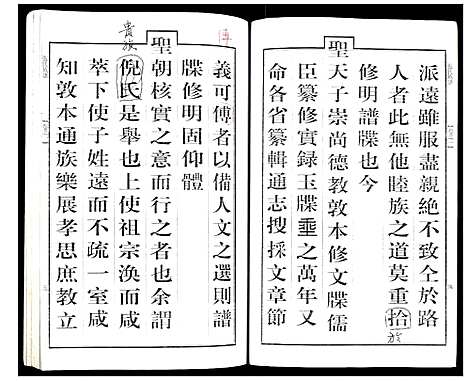 派遠雖服盡親絶不致全於路
人者此無他睦族之道莫重拾
於
修明譜牒也今
聖天子崇尚德教敦本修文牒儒
臣纂修實録玉牒埀之萬年又
命各省纂輯通志搜採文章節
義可傳者以備人文之選則譜
牒修明固仰體
聖朝核實之意而行之者也余謂
貴族
倪氏是舉也上使祖宗渙而咸
萃下使子姓遠而不疏一室咸
知敦本通族樂展孝思庶教立